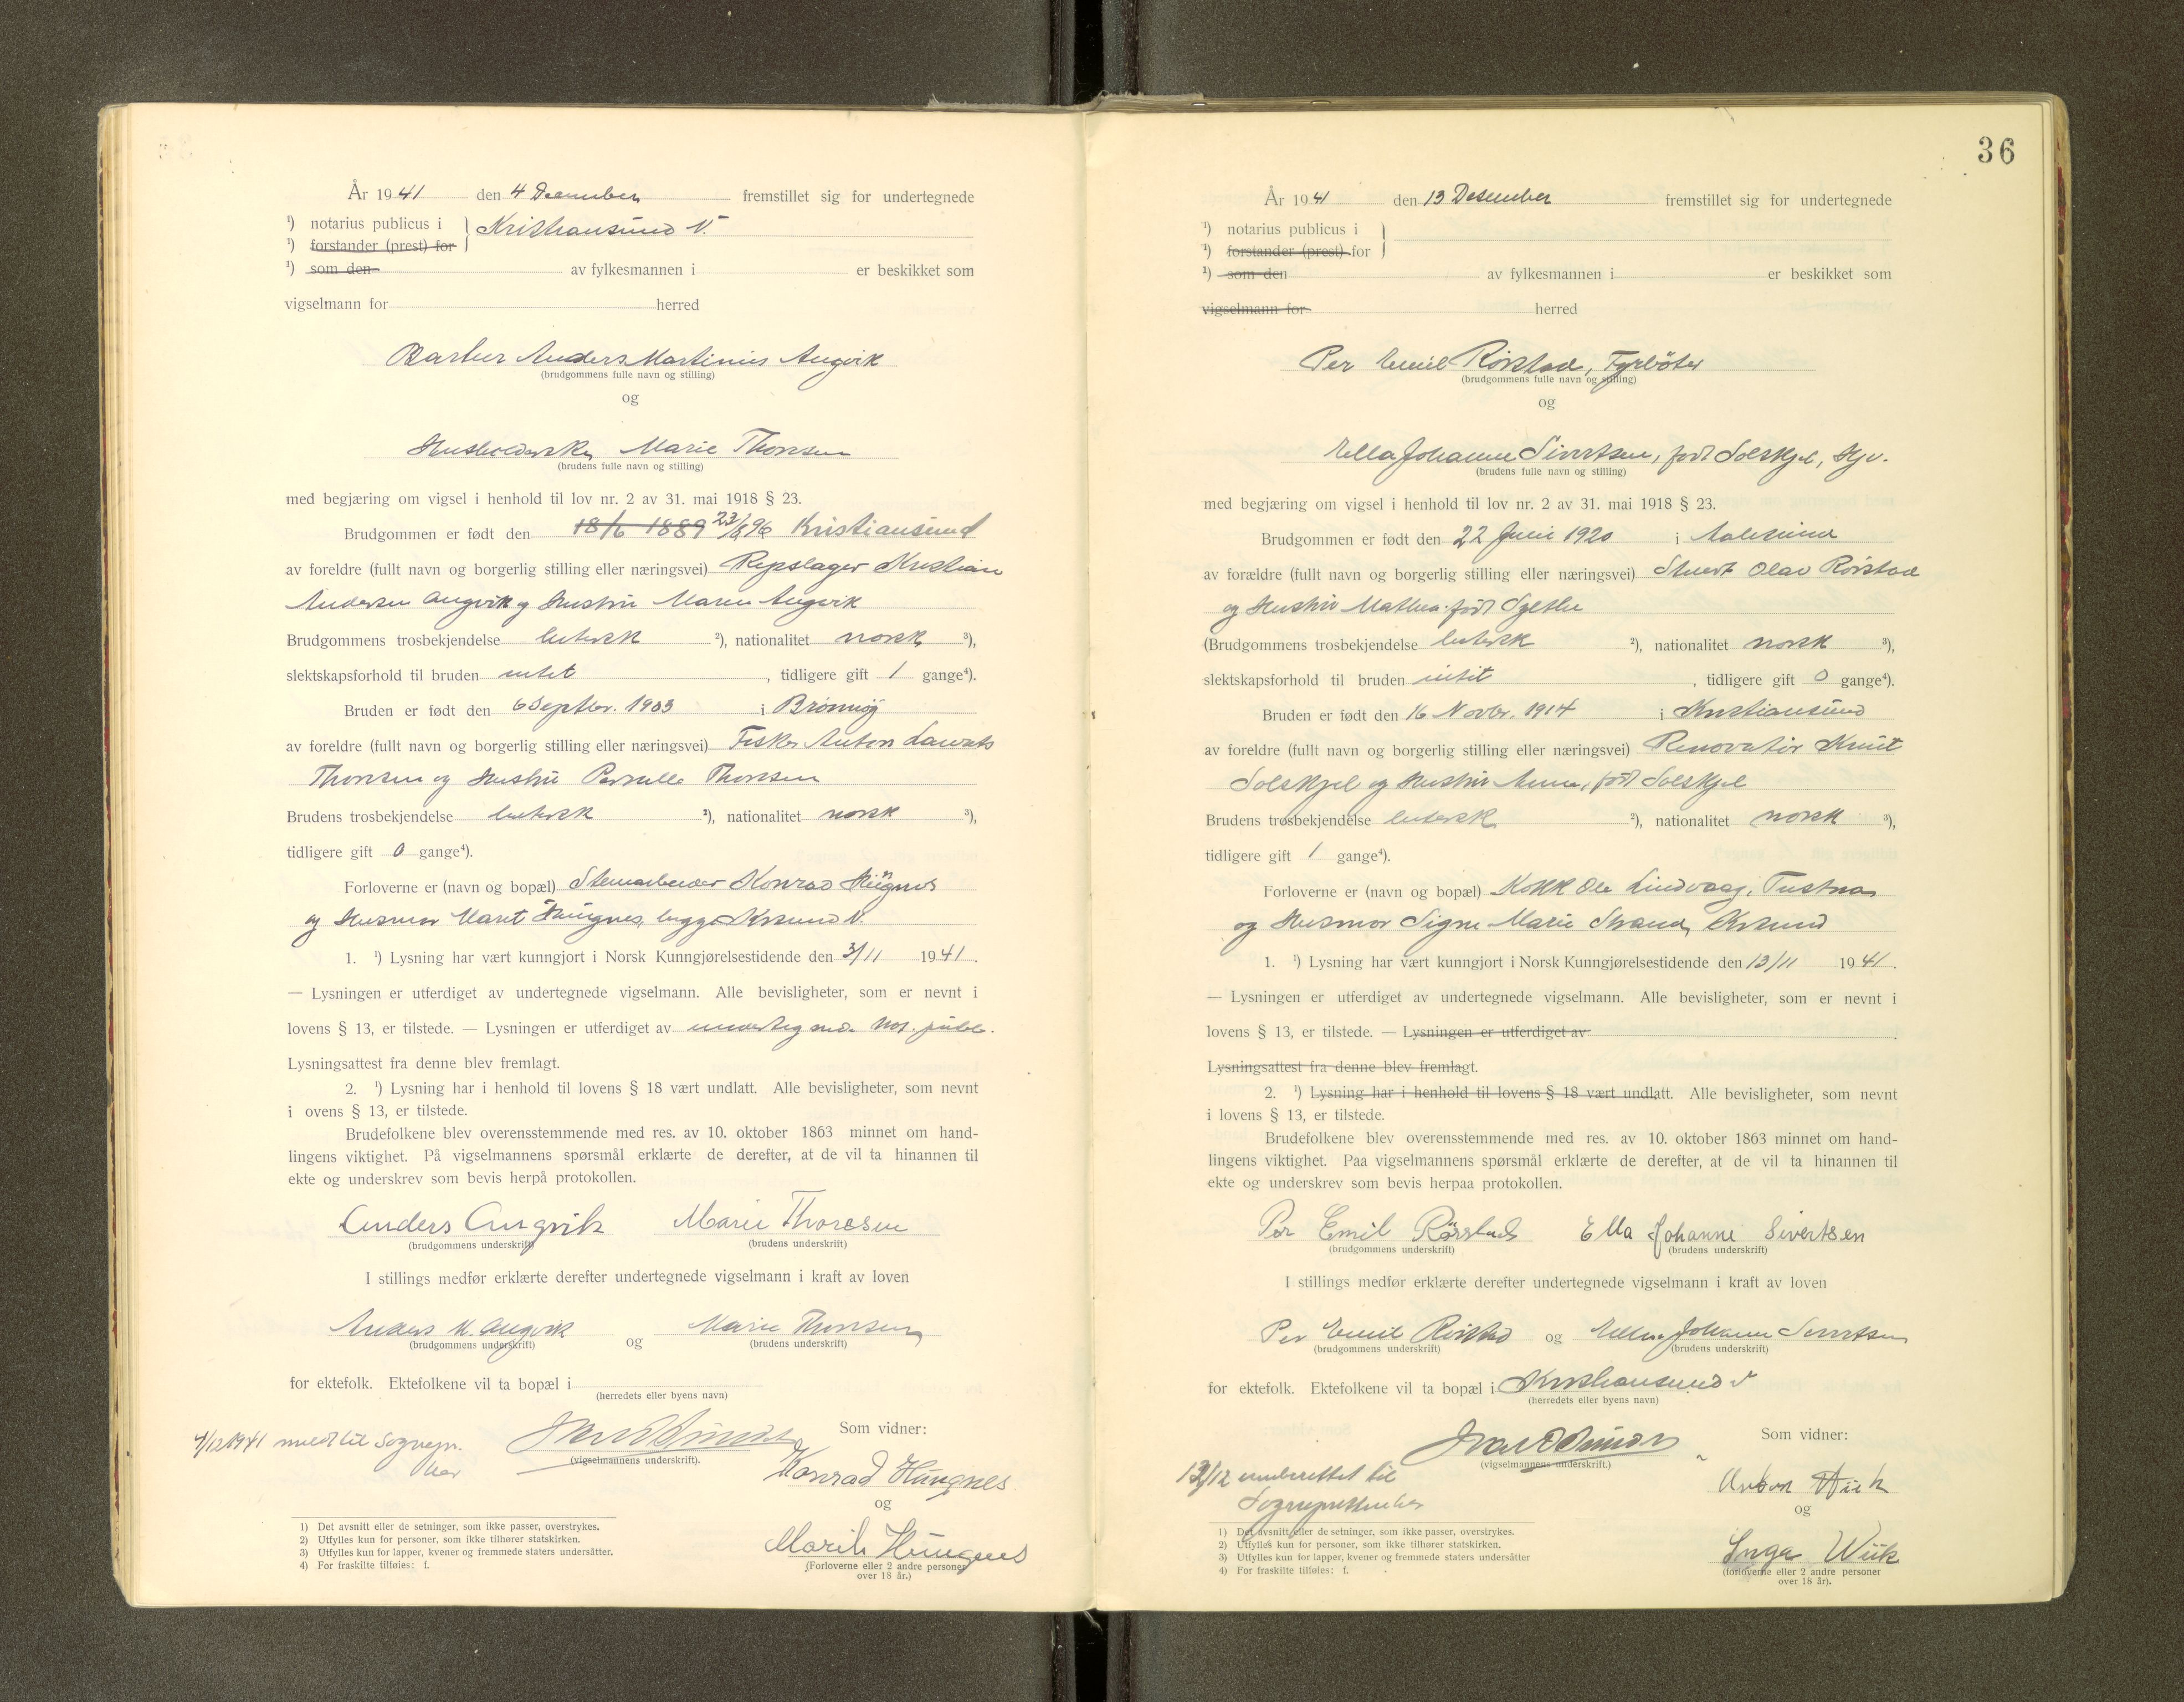 År 1941 den 4 December fremstillet sig for undertegnede
¹) notarius publicus i } Kristiansund N.
¹) forstander (prest) for
¹) som den av fylkesmannen i er beskikket som
vigselmann for herred
Barber Anders Martinius Angvik
(brudgommens fulle navn og stilling)
og
Husholderske Marie Thoresen
(brudens fulle navn og stilling)
med begjæring om vigsel i henhold til lov nr. 2 av 31. mai 1918 § 23.
Brudgommen er født den 18/6 1889 23/8 96 Kristiansund
av foreldre (fullt navn og borgerlig stilling eller næringsvei) Repslager Kristian
Andersen Angvik og Hustru Maren Angvik
Brudgommens trosbekjendelse luthersk ²), nationalitet norsk ³),
slektskapsforhold til bruden intet , tidligere gift 1 gange⁴).
Bruden er født den 6 Septbr. 1903 i Brønnøy
av foreldre (fullt navn og borgerlig stilling eller næringsvei) Fisker Anton
Thoresen og Hustru Thoresen
Brudens trosbekjendelse luthersk ²), nationalitet norsk ³),
tidligere gift 0 gange⁴).
Forloverne er (navn og bopæl) Stenarbeider Konrad Hungnes
og Husmor Marit Hungnes, begge Krsund N.
1. ¹) Lysning har vært kunngjort i Norsk Kunngjørelsestidende den 3/11 1941.
— Lysningen er utferdiget av undertegnede vigselmann. Alle bevisligheter, som er nevnt i
lovens § 13, er tilstede. — Lysningen er utferdiget av undertegnede not. publ.
Lysningsattest fra denne blev fremlagt.
2. ¹) Lysning har i henhold til lovens § 18 vært undlatt. Alle bevisligheter, som nevnt
i ovens § 13, er tilstede.
Brudefolkene blev overensstemmende med res. av 10. oktober 1863 minnet om hand-
lingens viktighet. På vigselmannens spørsmål erklærte de derefter, at de vil ta hinannen til
ekte og underskrev som bevis herpå protokollen.
Anders Angvik Marie Thoresen
(brudgommens underskrift) (brudens underskrift)
I stillings medfør erklærte derefter undertegnede vigselmann i kraft av loven
Anders M. Angvik og Marie Thoresen
(brudgommens underskrift) (brudens underskrift)
for ektefolk. Ektefolkene vil ta bopæl i
(herredets eller byens navn)
Som vidner:
4/12 1941 meldt til Sognepr.
her
(vigselmannens underskrift).
Konrad Hungnes
og
Marit Hungnes
(Forloverne eller 2 andre personer
over 18 år.)
1) Det avsnitt eller de setninger, som ikke passer, overstrykes.
2) Utfylles kun for personer, som ikke tilhører statskirken.
3) Utfylles kun for lapper, kvener og fremmede staters undersåtter.
4) For fraskilte tilføies: f.
36
År 1941 den 13 Desember fremstillet sig for undertegnede
¹) notarius publicus i }
¹) forstander (prest) for
¹) som den av fylkesmannen i er beskikket som
vigselmann for herred
Per Emil Rørstad, Fyrbøter
(brudgommens fulle navn og stilling)
og
Ella Johanne Sivertsen, født Solskjel, Hjv.
(brudens fulle navn og stilling)
med begjæring om vigsel i henhold til lov nr. 2 av 31. mai 1918 § 23.
Brudgommen er født den 22 Juni 1920 i Aalesund
av forældre (fullt navn og borgerlig stilling eller næringsvei) Olav Rørstad
og Hustru Mathea født
(Brudgommens trosbekjendelse luthersk ²), nationalitet norsk ³),
slektskapsforhold til bruden intet , tidligere gift 0 gange⁴).
Bruden er født den 16 Novbr. 1914 i Kristiansund
av foreldre (fullt navn og borgerlig stilling eller næringsvei) Renovatør Knut
Solskjel og Hustru Anna, født Solskjel
Brudens trosbekjendelse luthersk ²), nationalitet norsk ³),
tidligere gift 1 gange⁴).
Forloverne er (navn og bopæl) Kokk Ole Lindvaag, Tustna
og Husmor Signe Marie Strand, Krsund
1. ¹) Lysning har vært kunngjort i Norsk Kunngjørelsestidende den 13/11 1941.
— Lysningen er utferdiget av undertegnede vigselmann. Alle bevisligheter, som er nevnt i
lovens § 13, er tilstede. — Lysningen er utferdiget av .
Lysningsattest fra denne blev fremlagt.
2. ¹) Lysning har i henhold til lovens § 18 vært undlatt. Alle bevisligheter, som nevnt
i lovens § 13, er tilstede.
Brudefolkene blev overensstemmende med res. av 10. oktober 1863 minnet om hand-
lingens viktighet. Paa vigselmannens spørsmål erklærte de derefter, at de vil ta hinannen til
ekte og underskrev som bevis herpaa protokollen.
Per Emil Rørstad Ella Johanne Sivertsen
(brudgommens underskrift) (brudens underskrift)
I stillings medfør erklærte derefter undertegnede vigselmann i kraft av loven
Per Emil Rørstad og Ella Johanne Sivertsen
(brudgommens underskrift) (brudens underskrift)
for ektefolk. Ektefolkene vil ta bopæl i Kristiansund N
(herredets eller byens navn)
Som vidner:
(vigselmannens underskrift.)
13/12 underrettet til
Sognepresten her
Anton Wiik
og
Inga Wiik
(forloverne eller 2 andre personer
over 18 år).
1) Det avsnitt eller de setninger, som ikke passer, overstrykes.
2) Utfylles kun for personer, som ikke tilhører statskirken.
3) Utfylles kun for lapper, kvener og fremmede staters undersåtter
4) For fraskilte tilføies: f.